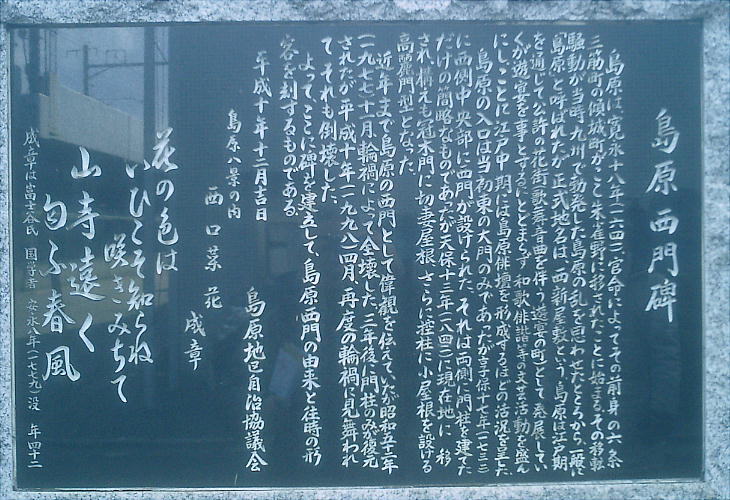 島原西門碑
島原は寛永十八年(一六四一)官命によってその前身の六条
三筋町の傾城町がここ朱雀野に移されたことに始まる。その移動
騒動が当時、九州で勃発した島原の乱を思わせたところから、一般に
「島原」と呼ばれたが、正式地名は「西新屋敷」という。島原は江戸期
を通じて公許の花街(歌舞音曲を伴う遊宴の町)として発展してい
くが、遊宴を事とするにとどまらず、和歌俳諧等の文芸活動を盛ん
にし、ことに江戸中期には島原俳壇を形成するほどの活況を呈した。
島原の入口は当初東の大門のみであったが、享保十七年(一七三二)
に西側中央部に西門が設けられた。それは両側に門柱を建てた
だけの簡略なものであったが、天保十三年(一八四二)に現在地に移
され、構えも冠木門に切妻屋根、さらに控柱に小屋根を設ける
高麗門型となった。
近年まで島原の西門として偉観を伝えていたが、昭和五十二年
(一九七七)十一月、輪禍によって全壊した。三年後に門柱のみ復元
されたが、平成十年(一九九八)四月、再度の輪禍に見舞われ
て、それも倒壊した。
よって、ここに碑を建立して、島原西門の由来と往時の形
容を刻するものである。
平成十年十二月吉日
島原地区自治協議会
島原八景の内
西口菜花
成章
花の色は
いひこそ知らね
咲きみちて
山寺遠く
匂ふ春風
成章は富士谷氏 国学者 安永八年(一七七九)没 年四十二